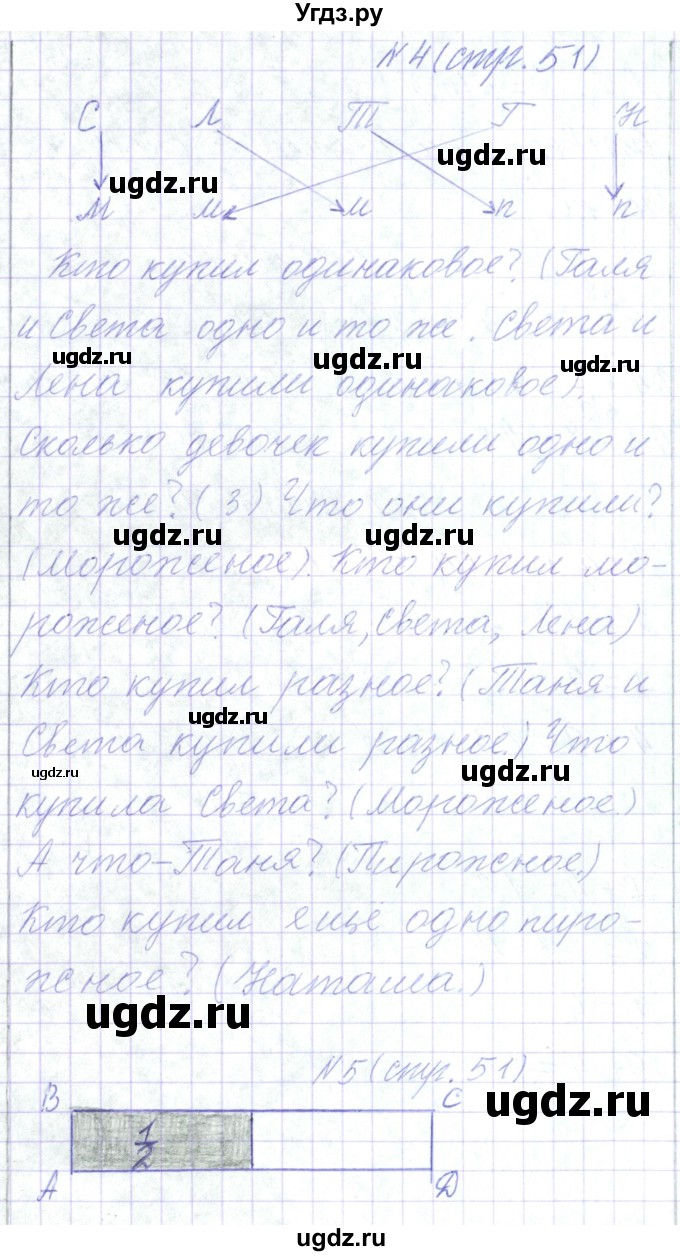 Угдз.ру
N4(стр. 51)
С Л Т Г Н
ugdz.ru ugdz.ru
М м м п п
Кто купил одинаковое? (Галя
и Света одно и то же. Света и
ugdz.ru ugdz.ru ugdz.ru
Лена купили одинаковое).
Сколько девочек купили одно и
то же? (3) Что они купили?
ugdz.ru ugdz.ru
(Мороженое). Кто купил мо-
роженое? (Галя, Света, Лена)
Кто купил разное? (Таня и
ugdz.ru
Света купили разное.) Что
ugdz.ru ugdz.ru
купила Света? (Мороженое.)
А что-Таня? (Пирожное.)
Кто купил ещё одно пиро-
жсное? (Наташа.)
ugdz.ru
N5(стр. 51)
В С
ugdz.ru
1/2
А D
ugdz.ru